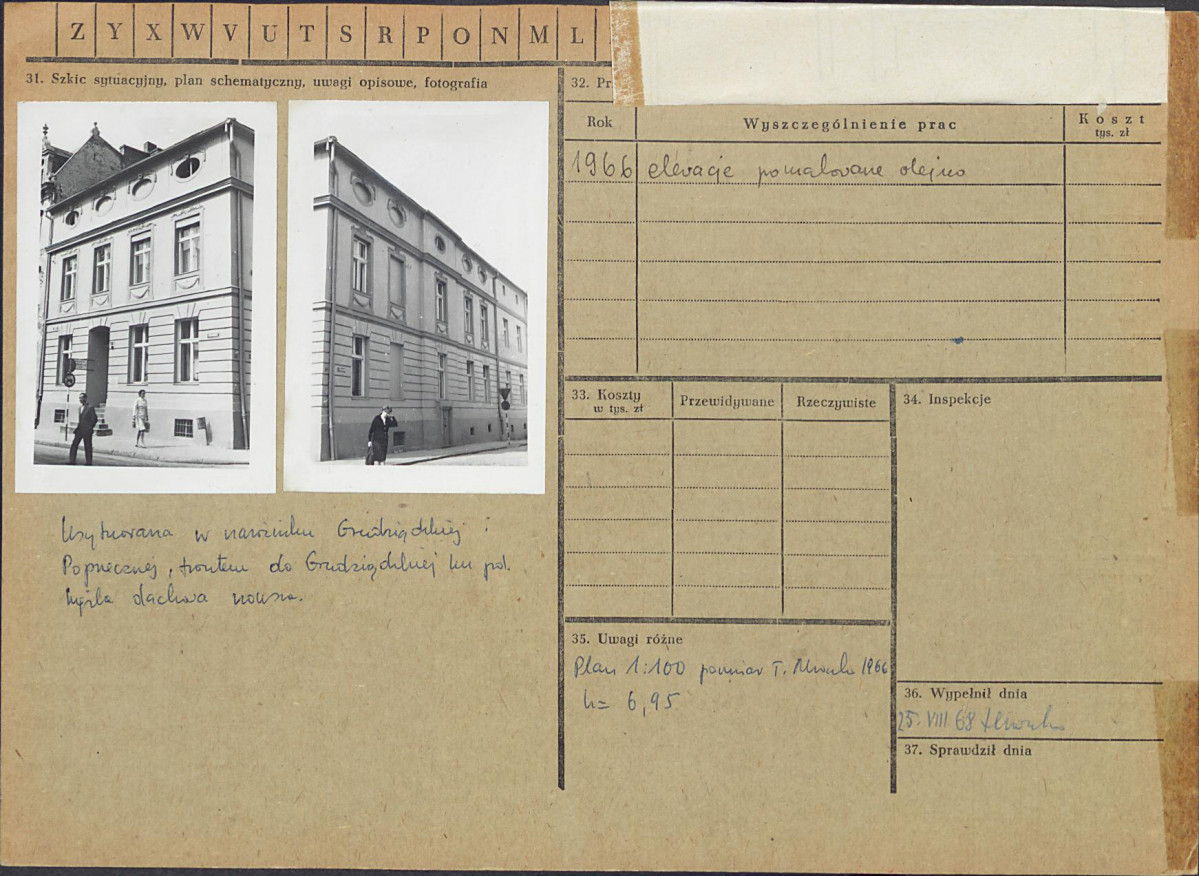 Z Y X W V U T S R P O N M L
31. Szkic sytuacyjny, plan schematyczny, uwagi opisowe, fotografia
Usytuowana w narożniku Grudziądzkiej i
Poprzecznej, frontem do Grudziądzkiej ku płd.
dachowa
32. Pr
Rok Wyszczególnienie prac Koszt
tys. zł
1966 elewacje pomalowane olejno
33. Koszty
w tys. zł
Przewidywane Rzeczywiste
34. Inspekcje
35. Uwagi różne
Plan 1:100 pomiar T. 1966
h= 6,95
36. Wypełnił dnia
25. VIII 68
37. Sprawdził dnia